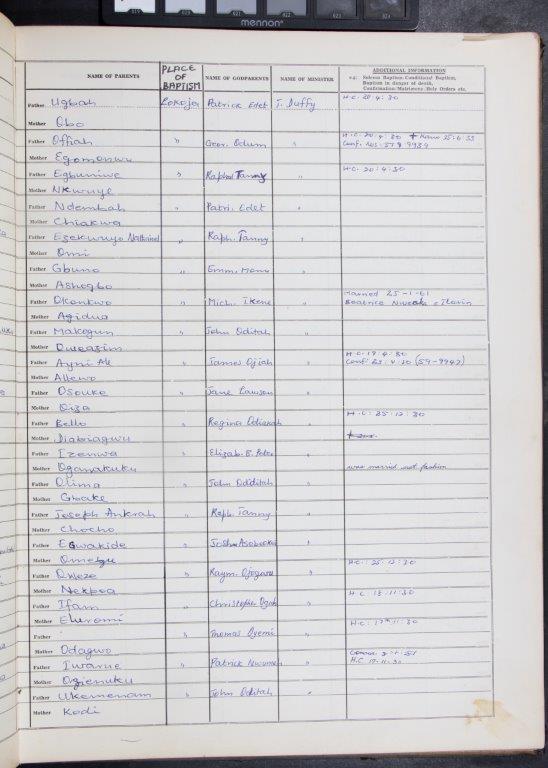 mennon
NAME OF PARENTS PLACE OF BAPTISM NAME OF GODPARENTS NAME OF MINISTER ADDITIONAL INFORMATION
e.g.: Solemn Baptism-Conditional Baptism, Baptism in danger of death, Confirmation-Matrimony-Holy Orders etc.
Father Ugbah Lokoja Patrick Edet J. Duffy H.C. 20.4.30
Mother Obo
Father Offiah " Geor. Odum " H.C. 20.4.30
Mother Egomonwu Conf. Nos.
Father Egbuniwe " Raphael Tanny " H.C. 20.4.30
Mother Nkwuye
Father Ndembah " Patri. Edet "
Mother Chiakwa
Father Ezekwuyo Nathaniel " Raph. Tanny "
Mother Omi
Father Gbuno " Emm.
Mother Ashogbo
Father Okonkwo " Mich. Ikene " Married 25-1-61
Mother Agidua Beatrice
Father Makogun " John Oditah "
Mother
Father Ayni " James Ojiah " H.C. 19.4.30
Mother Allewo Conf. (59-9947)
Father Osouke " Jane Lawson "
Mother Oiza
Father Bello " Regina Odiakah " H.C. 25.12.30
Mother Diabiagwu
Father Izenwa " Elizab. B. Peter "
Mother Oganakuku was married not
Father Olima " John Odiditah "
Mother Gbake
Father Joseph Ankrah " Raph. Tanny "
Mother Chocho
Father Egwakide " Joshua "
Mother
Father Okleze " Raym. " H.C. 25.12.30
Mother Nekpoa
Father Ifam " Christopher Ogah " H.C. 18.11.30
Mother Eluromi
Father " Thomas Oyemi " H.C. 17.11.30
Mother Odagwo
Father Iwarue " Patrick " H.C. 17.11.30
Mother Ogienuku
Father Ukemenam " John Oditah "
Mother Kodi